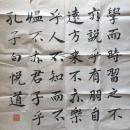 學而時習之不
亦說乎有朋自
遠方來不亦樂
乎人不知而不
愠不亦君子乎
孔子句悦道